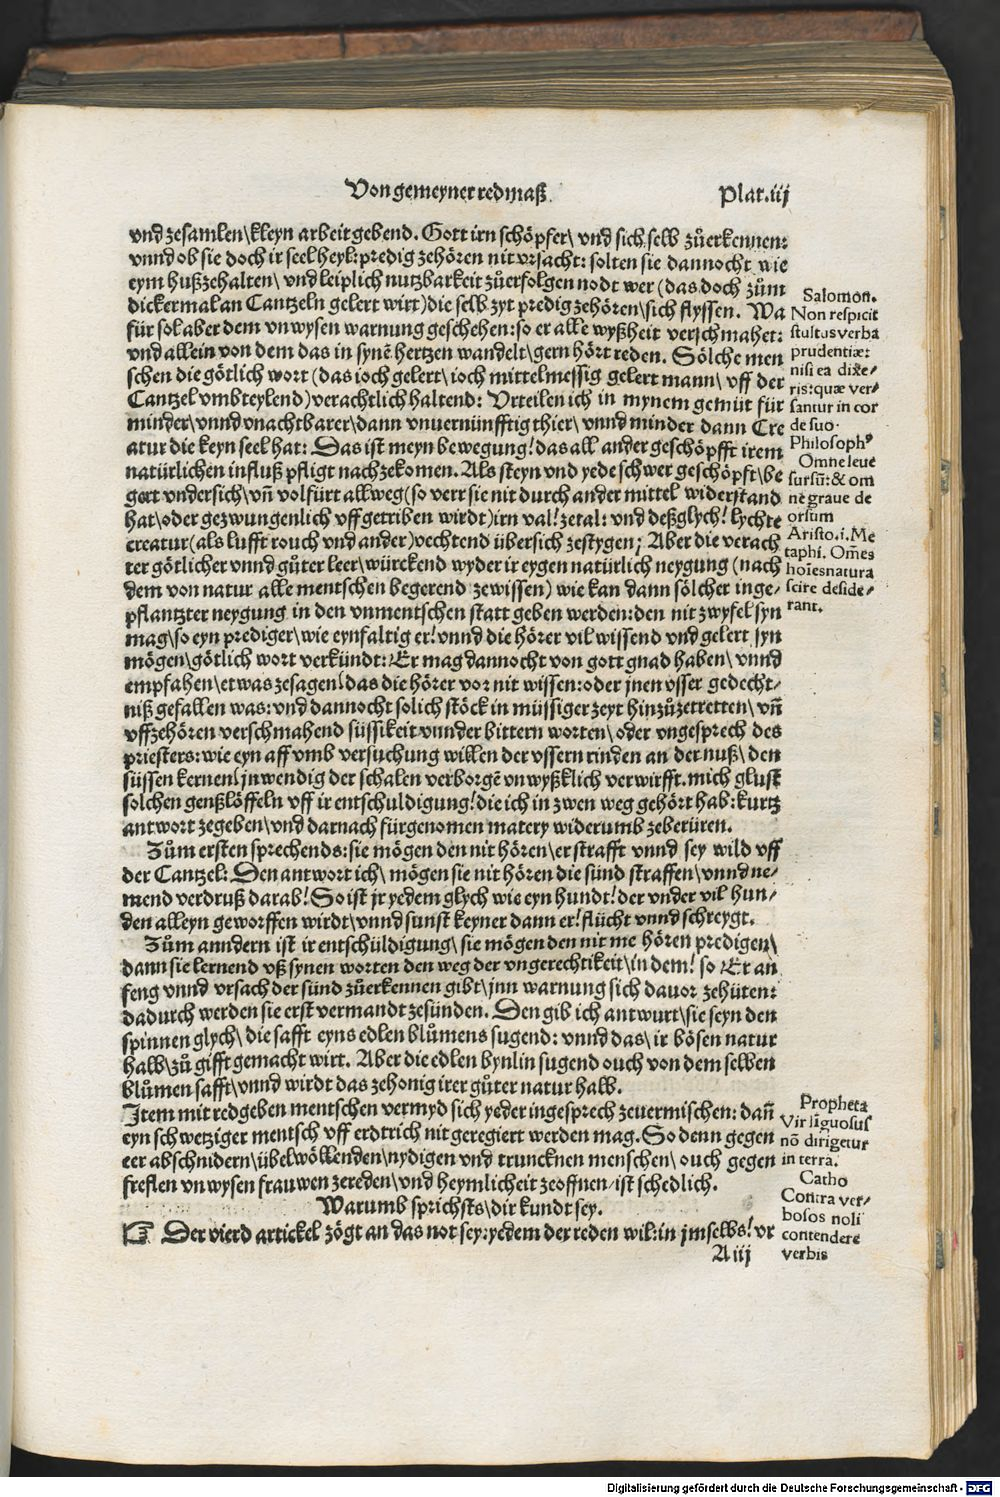 Von gemeyner redmaß.
Plat. iij
vnd zesamlen\ kleyn arbeit gebend. Gott irn schöpfer\ vnd sich selb zůerkennen:
vnnd ob sie doch ir seel heyl: predig zehören nit vrsacht: solten sie dannocht wie
eym hußzehalten\ vnd leiplich nutzbarkeit zůerfolgen nodt wer (das doch zům
dickermal an Cantzeln gelert wirt) die selb zyt predig zehören\ sich flyssen. Wa
für sol aber dem vnwysen warnung geschehen: so er alle wyßheit verschmahet:
vnd allein von dem das in synē hertzen wandelt\ gern hört reden. Sölche men
schen die götlich wort (das ioch gelert\ ioch mittelmessig gelert mann\ vff der
Cantzel vmbteylend) verachtlich haltend: Vrteilen ich in mynem gemüt für
minder\ vnnd vnachtbarer\ dann vnuernünfftig thier\ vnnd minder dann Cre
atur die keyn seel hat: Das ist meyn bewegung! das all ander geschöpfft irem
natürlichen influß pfligt nachzekomen. Als steyn vnd yede schwer geschöpft\ be
gert vndersich\ vn̄ volfürt allweg (so verr sie nit durch ander mittel widerstand
hat\ oder gezwungenlich vffgetriben wirdt) irn val! zetal: vnd deßglych! lychte
creatur (als lufft rouch vnd ander) vechtend übersich zestygen; Aber die verach
ter götlicher vnnd gůter leer\ würckend wyder ir eygen natürlich neygung (nach
dem von natur alle mentschen begerend zewissen) wie kan dann sölcher inge⸗
pflantzter neygung in den vnmentschen statt geben werden: den nit zwyfel syn
mag\ so eyn prediger\ wie eynfaltig er! vnnd die hörer vil wissend vnd gelert syn
mögen\ götlich wort verkündt: Er mag dannocht von gott gnad haben\ vnnd
empfahen\ etwas zesagen! das die hörer vor nit wissen: oder jnen vsser gedecht⸗
niß gefallen was: vnd dannocht solich stöck in müssiger zeyt hinzůzetretten\ vn̄
vffzehören verschmahend süssikeit vnnder bittern worten\ oder vngesprech des
priesters: wie eyn aff vmb versuchung willen der vssern rinden an der nuß\ den
süssen kernen! jnwendig der schalen verborgē vnwyßklich verwirfft. mich glust
solchen genßlöffeln vff ir entschuldigung! die ich in zwen weg gehört hab: kurtz
antwort zegeben\ vnd darnach fürgenomen matery widerumb zeberüren.
Zům ersten sprechends: sie mögen den nit hören\ er strafft vnnd sey wild vff
der Cantzel: Den antwort ich\ mögen sie nit hören die sünd straffen\ vnnd ne⸗
mend verdruß darab! So ist jr yedem glych wie eyn hundt! der vnder vil hun⸗
den alleyn geworffen wirdt\ vnnd sunst keyner dann er! flücht vnnd schreygt.
Zům anndern ist ir entschüldigung\ sie mögen den nit me hören predigen\
dann sie lernend vß synen worten den weg der vngerechtikeit\ in dem! so Er an
feng vnnd vrsach der sünd zůerkennen gibt\ jnn warnung sich dauor zehüten:
dadurch werden sie erst vermandt zesünden. Den gib ich antwurt\ sie seyn den
spinnen glych\ die safft eyns edlen blůmens sugend: vnnd das\ ir bösen natur
halb\ zů gifft gemacht wirt. Aber die edlen bynlin sugend ouch von dem selben
blůmen safft\ vnnd wirdt das zehonig irer gůter natur halb.
Item mit redgeben mentschen vermyd sich yeder ingesprech zeuermischen: dan̄
eyn schwetziger mentsch vff erdtrich nit geregiert werden mag. So denn gegen
eer abschnidern\ übelwöllenden\ nydigen vnd truncknen menschen\ ouch gegen
freflen vnwysen frauwen zereden\ vnd heymlicheit zeoffnen⸗ ist schedlich.
Warumb sprichsts\ dir kundt sey.
☞ Der vierd artickel zögt an das not sey: yedem der reden wil: in jm selbs! vr
A iij
Salomon.
Non respicit
stultus verba
prudentiæ:
nisi ea dixe⸗
ris: quæ ver⸗
santur in cor
de suo.
Philosophꝰ
Omne leue
sursū: & om
ne graue de
orsum
Aristo. i. Me
taphi. Om̄es
hoīes natura
scire deside⸗
rant.
Propheta
Vir līguosus
nō dirigetur
in terra.
Catho
Contra ver⸗
bosos noli
contendere
verbis
Digitalisierung gefördert durch die Deutsche Forschungsgemeinschaft - DFG